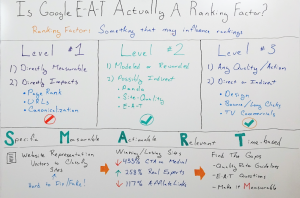 Is Google E-A-T Actually A Ranking Factor?
Ranking Factor: Something that may influence rankings
Level #1
1) Directly Measurable
2) Directly Impacts
• Page Rank
• URLs
• Canonicalization
Level #2
1) Modeled or Rewarded
2) Possibly Indirect
• Panda
• Site-Quality
• E-A-T
Level #3
1) Any Quality/Action
2) Direct or Indirect
• Design
• Bounce/Long Clicks
• TV Commercials
S M A R T
Specific Measurable Actionable Relevant Time-based
Website Representation
Vectors to Classify
Sites
Hard to Fix/Fake!
Winning/Losing Sites
CTA on Medical
Real Experts
Affiliate Links
Find The Gaps
- Quality Rater Guidelines
- E-A-T Questions
- Make it Measurable